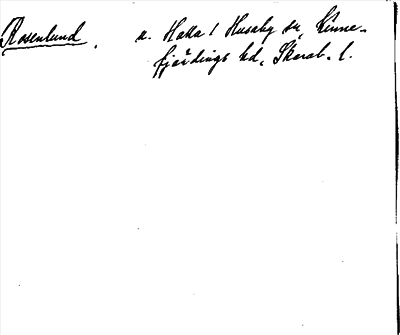 Rosenlund. a. Halla 1 Husaby sn, Kinne-
fjärdings hd, Skarab. l.